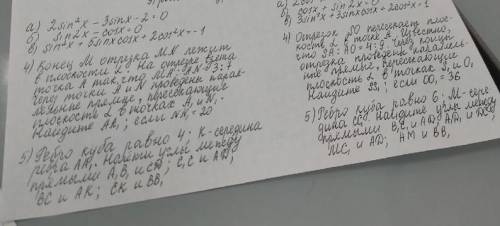 а) 2sin²x - 3sinx - 2 = 0
б) sin2x - cosx = 0
в) sin²x + 5sinxcosx + 2cos²x = -1
4) Конец М отрезка MN лежит
в плоскости L. На отрезке взята
точка А так, что MA:AN = 3:7
Через точки А и N проведены парал-
лельные прямые, пересекающие
плоскость L в точках A₁ и N₁.
Найдите AA₁, если NN₁ = 20
5) Ребро куба равно 4. К-середина
ребра AA₁. Найти углы между
прямыми A₁B₁ и CD; C₁C и AD;
BC и AK; CK и BB₁
cosx + sin2x = 0
в) 3sin²x + 3sinxcosx + 2cos²x = 1
4) Отрезок SO пересекает плос-
кость L в точке А. Известно,
что SA:AO = 4:9. Через концы
отрезка проведены параллель-
ные прямые, пересекающие
плоскость L в точках S₁ и O₁
Найдите SS₁, если OO₁ = 36
5) Ребро куба равно 6; М-сере-
дина CC₁. Найдите углы между
прямыми B₁C₁ и AD; A₁D₁ и DC;
MC₁ и AD; AM и BB₁